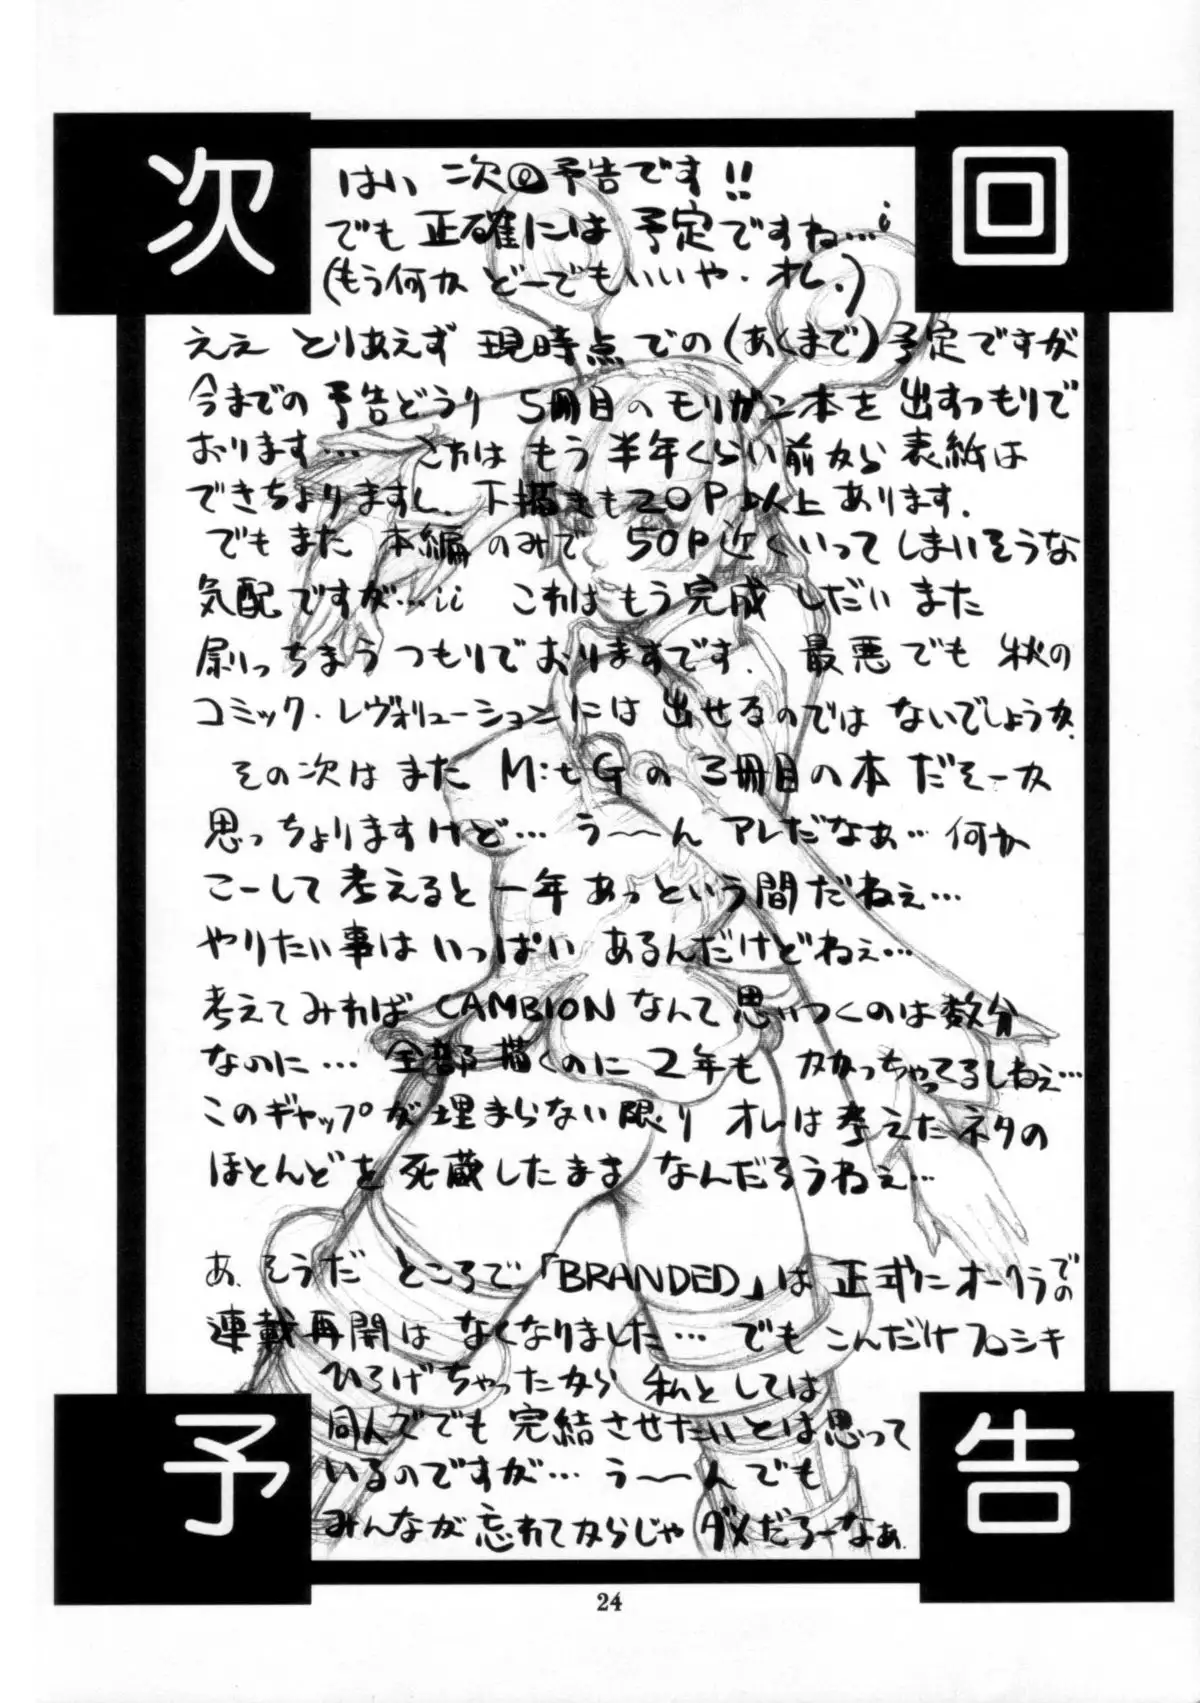 次回
はい 次回予告です!!
でも 正確には 予定ですね…
(もう何か どーでもいいや・オレ.)
ええ とりあえず 現時点での(あくまで)予定ですが
今までの 予告どうり 5冊目のモリガン本を 出すつもりで
おります… これは もう 半年くらい前から 表紙は
できちょりますし、下描きも20P以上あります.
でもまた 本編のみで 50P近くいってしまいそうな
気配ですが… これはもう完成 しだいまた
刷っちまうつもりでおりますです. 最悪でも 秋の
コミック・レヴォリューションには 出せるのでは ないでしょうか.
その次は また M:tGの 3冊目の本 だそーか
思っちょりますけど… う〜〜ん アレだなぁ… 何か
こーして 考えると 一年 あっという間だねぇ…
やりたい事は いっぱい あるんだけどねぇ…
考えてみれば CAMBION なんて 思いつくのは 数分
なのに… 全部描くのに 2年も かかっちゃってるしねぇ…
このギャップが 埋まらない限り オレは 考えたネタの
ほとんどを 死蔵したまま なんだろうねぇ…
あ、そうだ ところで 「BRANDED」は 正式にオークラでの
連載再開は なくなりました… でも こんだけフロシキ
ひろげちゃったから 私としては
同人ででも 完結させたいとは思って
いるのですが… う〜〜んでも
みんなが 忘れてからじゃ ダメだろーなぁ.
予告
24